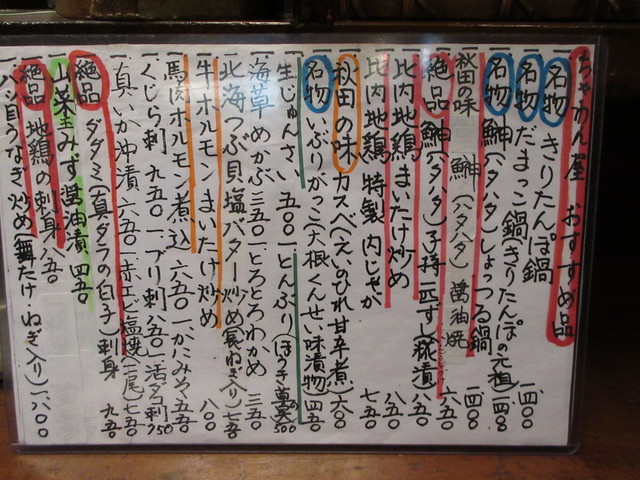 ちゃわん屋 おすすめ品
一 名物 きりたんぽ鍋 一四〇〇
一 名物 だまっこ鍋(きりたんぽの元祖) 一四〇〇
一 名物 鰰(ハタハタ)しょっつる鍋 一四〇〇
秋田の味 鰰(ハタハタ)醤油焼 六五〇
一 絶品 鰰(ハタハタ)子持一匹すし(糀漬) 八五〇
一 比内地鶏 まいたけ炒め 八五〇
一 比内地鶏 特製 肉じゃが 七五〇
一 秋田の味 カスベ(えいのひれ甘辛煮) 六〇〇
一 名物 いぶりがっこ(大根くんせい味漬物) 四五〇
一 生じゅんさい 五〇〇 一 とんぶり(ほうき草の実) 500
一 海草 めかぶ 三五〇 一 とろとろわかめ 三五〇
一 北海つぶ貝塩バター炒め(長ねぎ入り) 七五〇
一 牛ホルモン まいたけ炒め 八〇〇
一 馬肉ホルモン煮込 六五〇 一 かにみそ 五五〇
一 くじら刺 九五〇 一 ブリ刺 八五〇 一 活ダコ刺 750
一 真いか沖漬 六五〇 一 赤エビ塩焼(二尾) 七五〇
一 絶品 ダダミ(真ダラの白子)刺身 九五〇
一 山菜 生みず 醤油漬 四五〇
一 絶品 地鶏の刺身 八五〇
一 八ツ目うなぎ炒め(舞たけ ねぎ入り) 一八〇〇